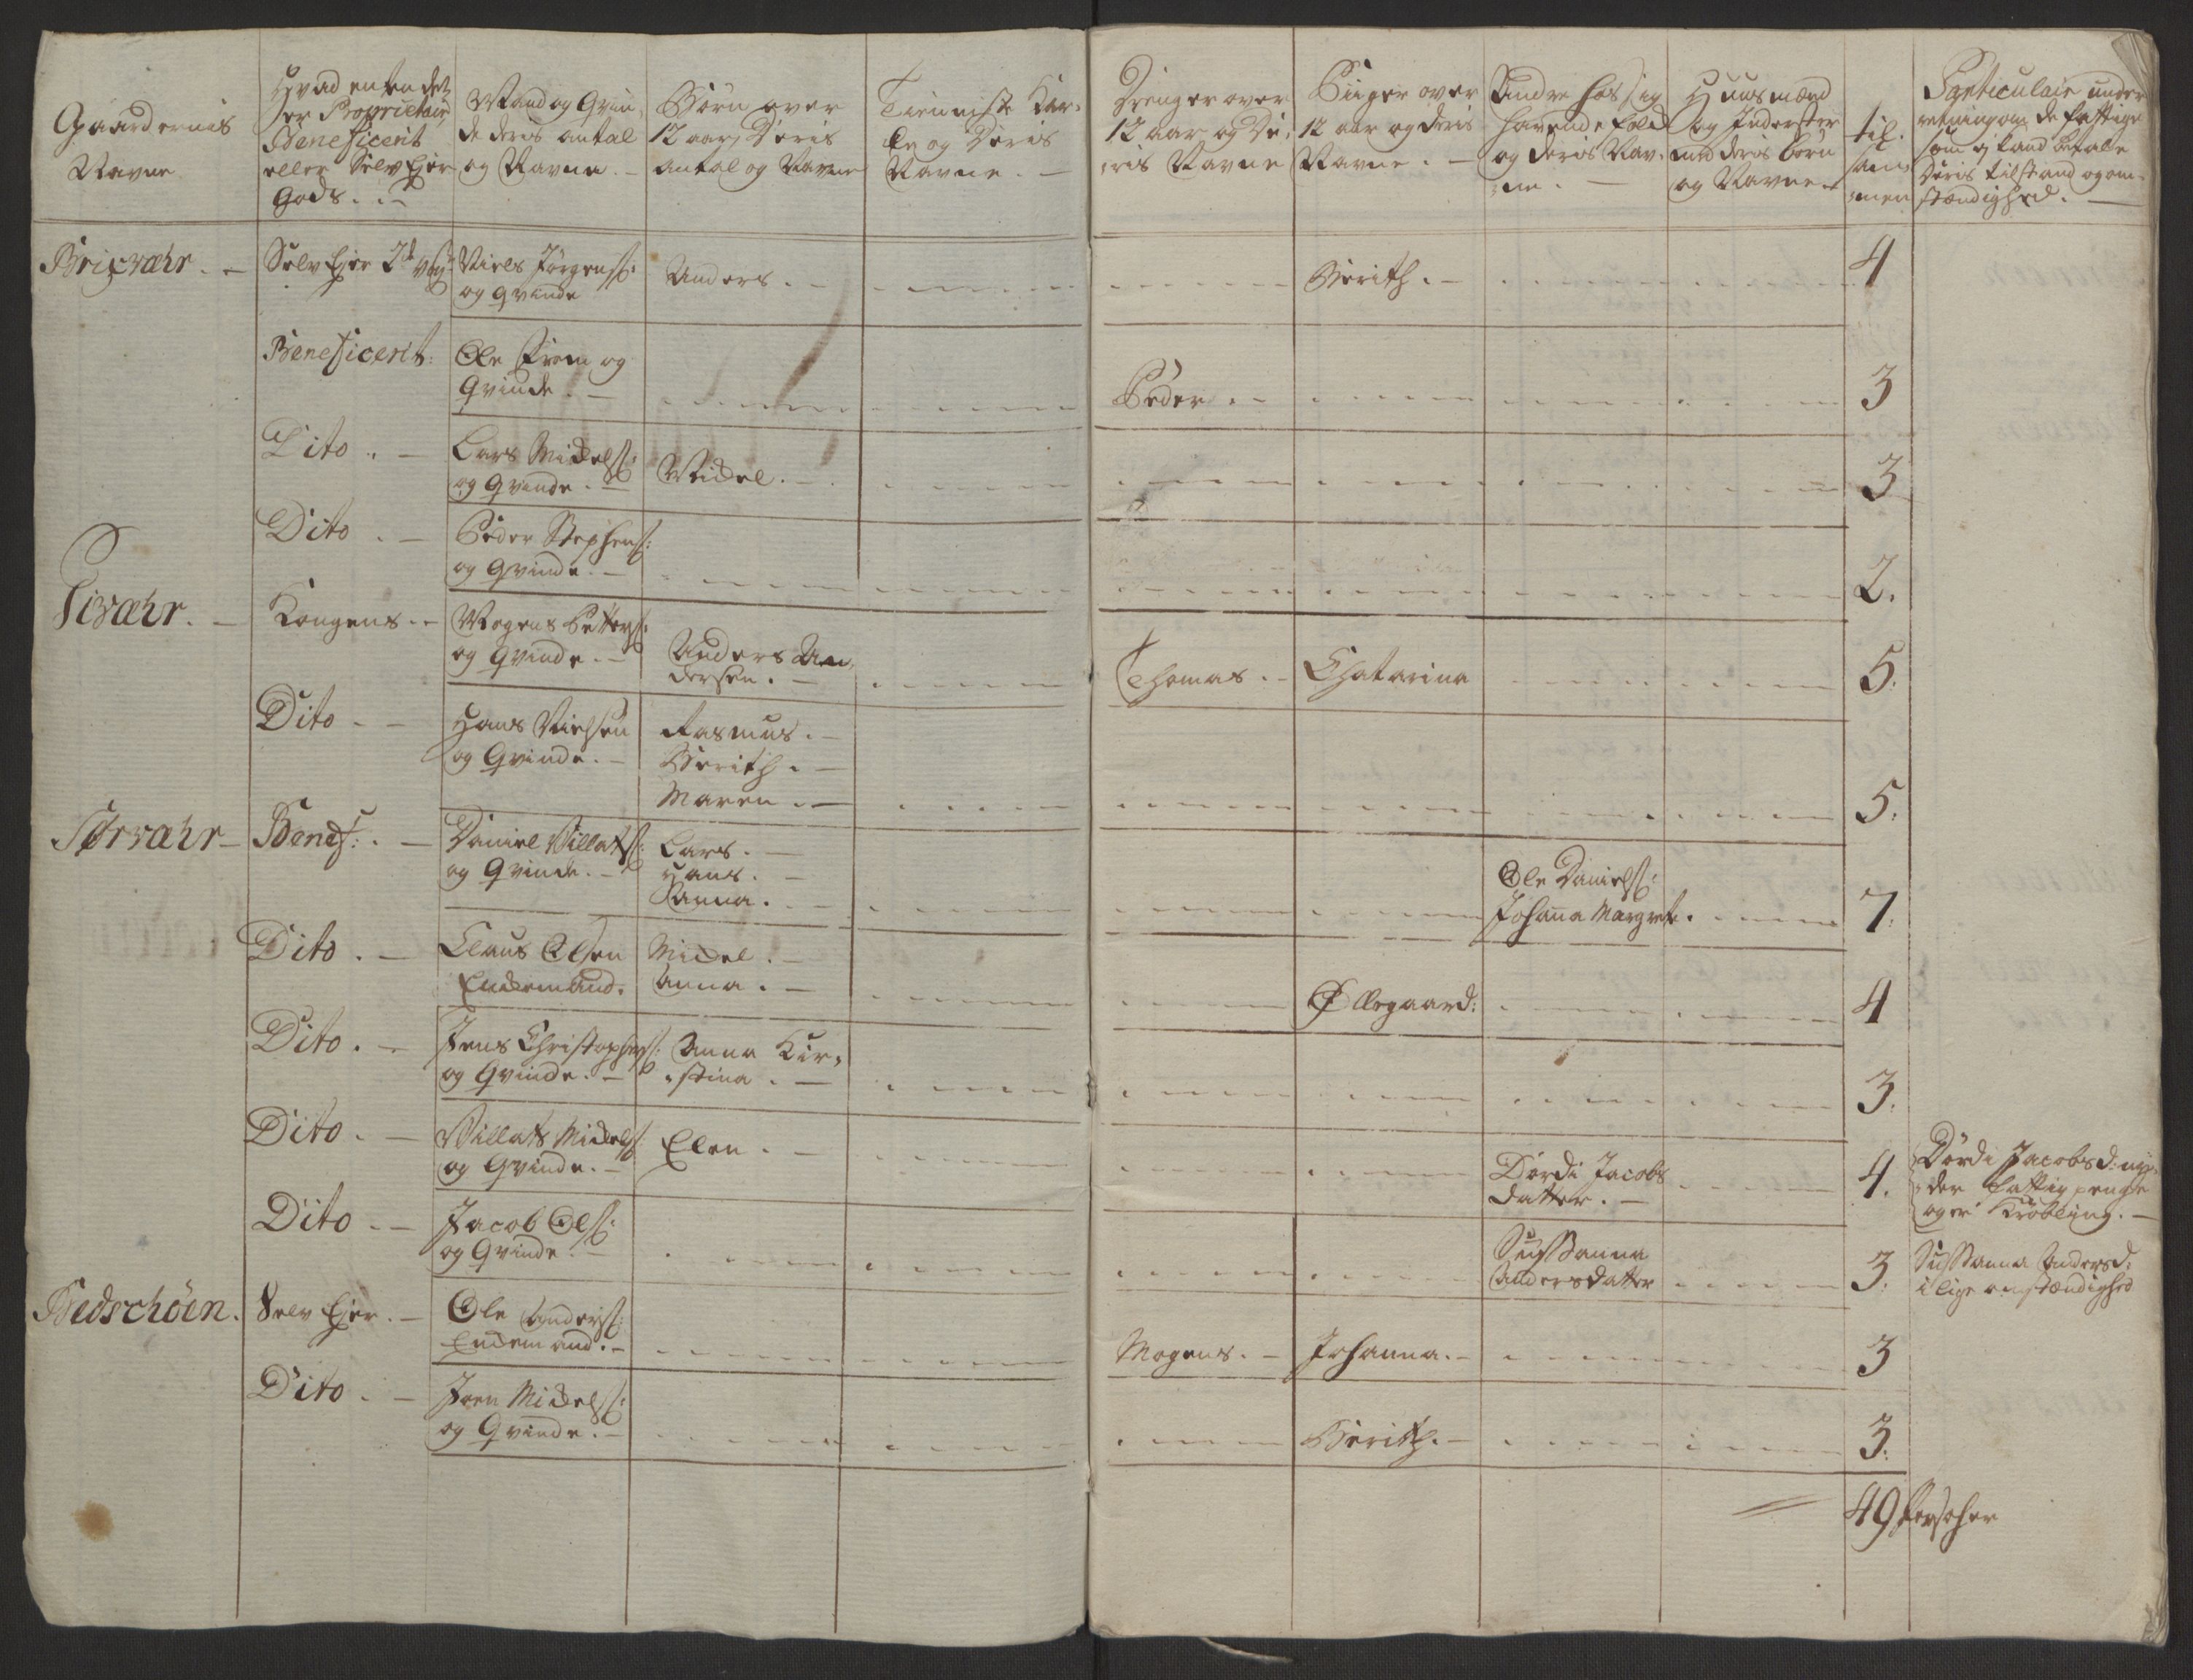 Gaardernis
Navne
Hvad enten det
er Proprietair
Beneficerit
eller Selv Ejer
Gods. . -
Mand og Qvin,
de deris antal
og Navne. -
Børn over
12 aar, Deris
antal og Navne
Tienniste Kar,
le og Deris
Navne. -
Drenger over
12 aar og De,
ris Navne
Piiger over
12 aar og deris
Navne. -
Andre hos sig
havende folk
og deris Nav,
ne. -
Huusmænd
og Inderster
med deris børn
og Navne
til
sam,
men
Particulair under
retning om de fattige
som ej kand betale
Deris tilstand og om,
stændighed. -
Brixvæhr. -
Selv Ejer
Niels Jørgens:
og qvinde
Anders. -
Berith. -
4
Beneficerit:
Ole From og
Qvinde. -
Peder. -
3
Dito. -
Lars Mickels:
og Qvinde. -
Mickel. -
3
Dito. -
Peder Stephens:
og Qvinde. -
2.
Sivæhr. -
Kongens. -
Mogens Petters:
og Qvinde. -
Anders An,
dersen. -
Thomas. -
Chatarina
5.
Dito - -
Hans Nielsen
og Qvinde. -
Rasmus. -
Berith. -
Maren. -
5.
Sørvæhr -
Benef: . -
Daniel Villats:
og Qvinde. -
Lars. -
Hans. -
Anna. -
Ole Daniels:
Johanna Margrete.
7.
Dito. -
Claus Olsen
Enckemand.
Mickel. -
Anna. -
Øllegaard:
4
Dito. -
Jens Christophers:
og Qvinde. -
Anna Kir,
stina. -
3.
Dito. -
Villats Mickels:
og Qvinde. -
Elen. -
Dørdi Jacobs
datter. -
4.
Dørdi Jacobs d: ny,
der fattig penge
og er Krøbling. -
Dito. -
Jacob Ols:
og Qvinde. -
Sussanna
Andersdatter
3.
Sussanna Anders d:
i lige omstændighed
Bedschöen.
Selv Ejer. -
Ole Anders:
Enckemand. -
Mogens. -
Johanna. -
3
Dito. -
Joen Mickels:
og Qvinde. -
Berith. -
3.
49 Persohner